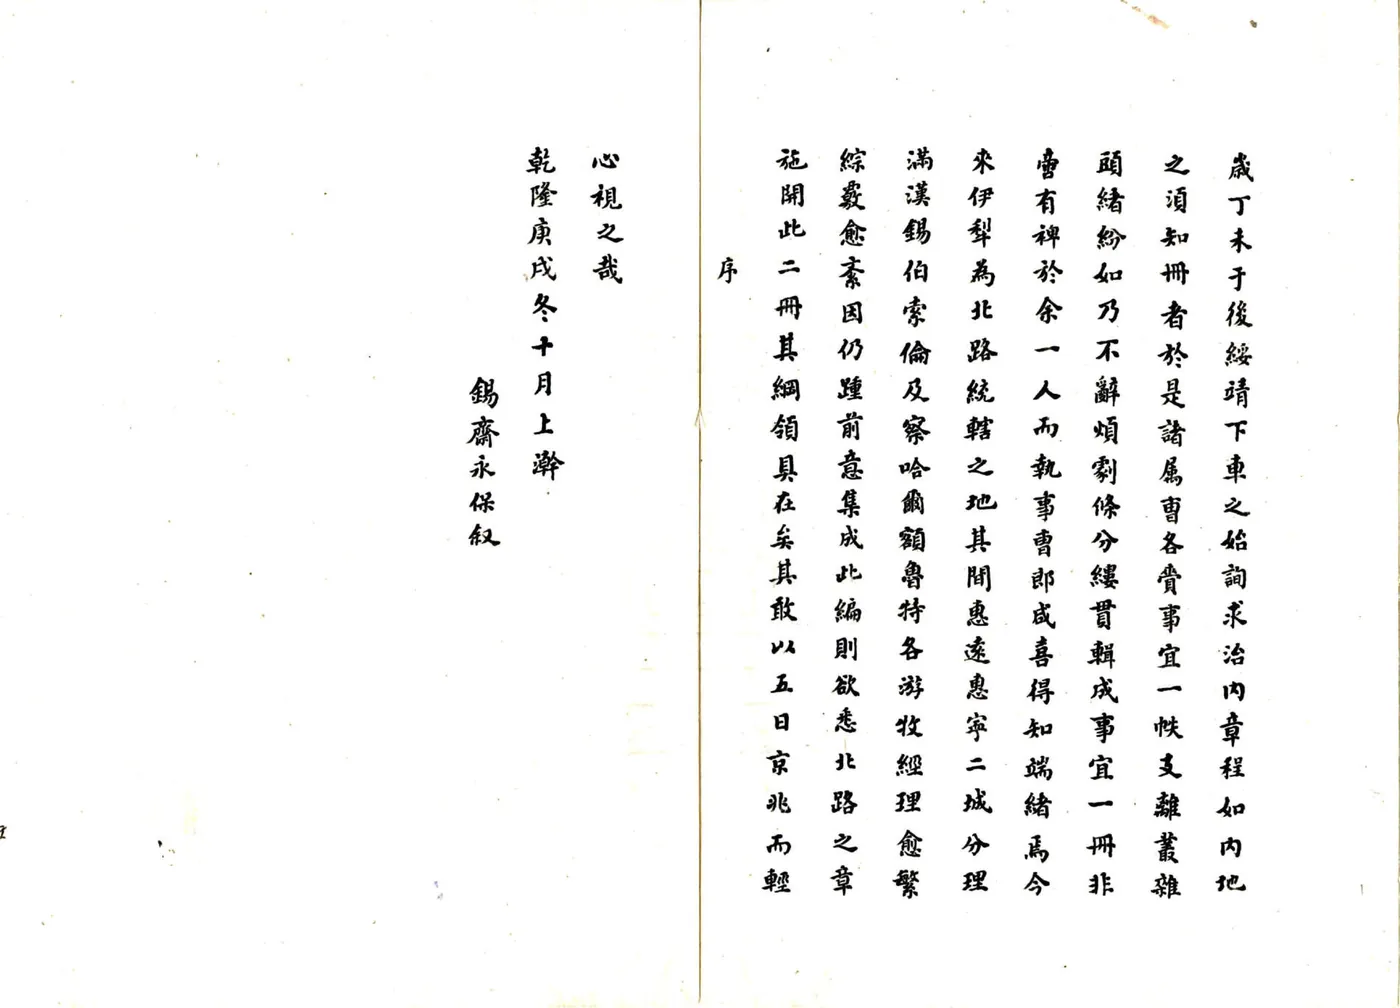 歳丁未于後綏靖下車之始詢求治内章程如内地
之須知冊者於是諸属曺各賫事宜一帙支離叢雜
頭緒紛如乃不辭煩劇條分縷貫輯成事宜一冊非
啻有裨於余一人而執事曺郎咸喜得知端緒焉今
來伊犁為北路統轄之地其間惠遠惠寧二城分理
滿漢錫伯索倫及察哈爾額魯特各游牧經理愈繁
綜覈愈紊因仍踵前意集成此編則欲悉北路之章
施開此二冊其綱領具在矣其敢以五日京兆而輕
序
心視之哉
乾隆庚戌冬十月上澣
錫齋永保叙